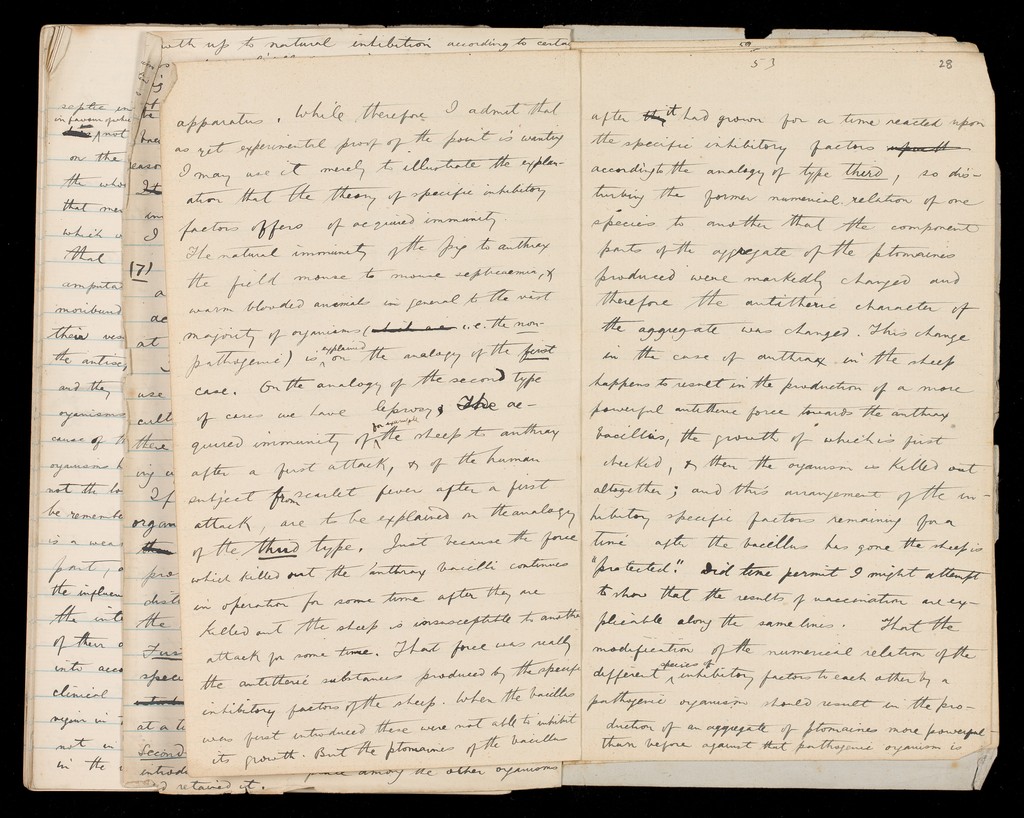 with up to natural inhibition according to certain
apparatus. While therefore I admit that
as yet experimental proof of the point is wanting
I may use it merely to illustrate the explan-
ation that the theory of specific inhibitory
factors offers of acquired immunity.
The natural immunity of the pig to anthrax
the field mouse to mouse septicaemia, &
warm blooded animals in general to the vast
majority of organisms (which are i.e. the non-
pathogenic) is explained on the analogy of the first
case. On the analogy of the second type
of cases we have leprosy & The ac-
quired immunity for example of the sheep to anthrax
after a first attack, & of the human
subject from scarlet fever after a first
attack, are to be explained on the analogy
of the third type. Just because the force
which killed out the anthrax bacilli continues
in operation for some time after they are
killed out the sheep is insusceptible to another
attack for some time. That force was really
the antitheric substances produced by the specific
inhibitory factors of the sheep. When the bacillus
was first introduced these were not able to inhibit
its growth. But the ptomaines of the bacillus
53
28
after it had grown for a time reacted upon
the specific inhibitory factors
according to the analogy of type third, so dis-
turbing the former numerical relation of one
species to another that the component
parts of the aggregate of the ptomaines
produced were markedly changed and
therefore the antitheric character of
the aggregate was changed. This change
in the case of anthrax in the sheep
happens to result in the production of a more
powerful antitheric force towards the anthrax
bacillus, the growth of which is first
checked, & then the organism is killed out
altogether; and this arrangement of the in-
hibitory specific factors remaining for a
time after the bacillus has gone the sheep is
"protected." Did time permit I might attempt
to show that the results of vaccination are ex-
plicable along the same lines. That the
modification of the numerical relation of the
different species of inhibitory factors to each other by a
pathogenic organism should result in the pro-
duction of an aggregate of ptomaines more powerful
than before against that pathogenic organism is
septic in
in favour of
not
on the
the who
that mer
which
that
amputa
moribund
their ves
the antisep
and they
organisms
cause of th
organisms h
not the bo
be remembe
is a weak
part,
the influen
the inte
of their
into acco
clinical
region in
not in
in the
(7)
at
use
cult
there
ing
If
organ
pro
dist
the
First
speci
at a t
Second
introd
among the other organisms
retained it.